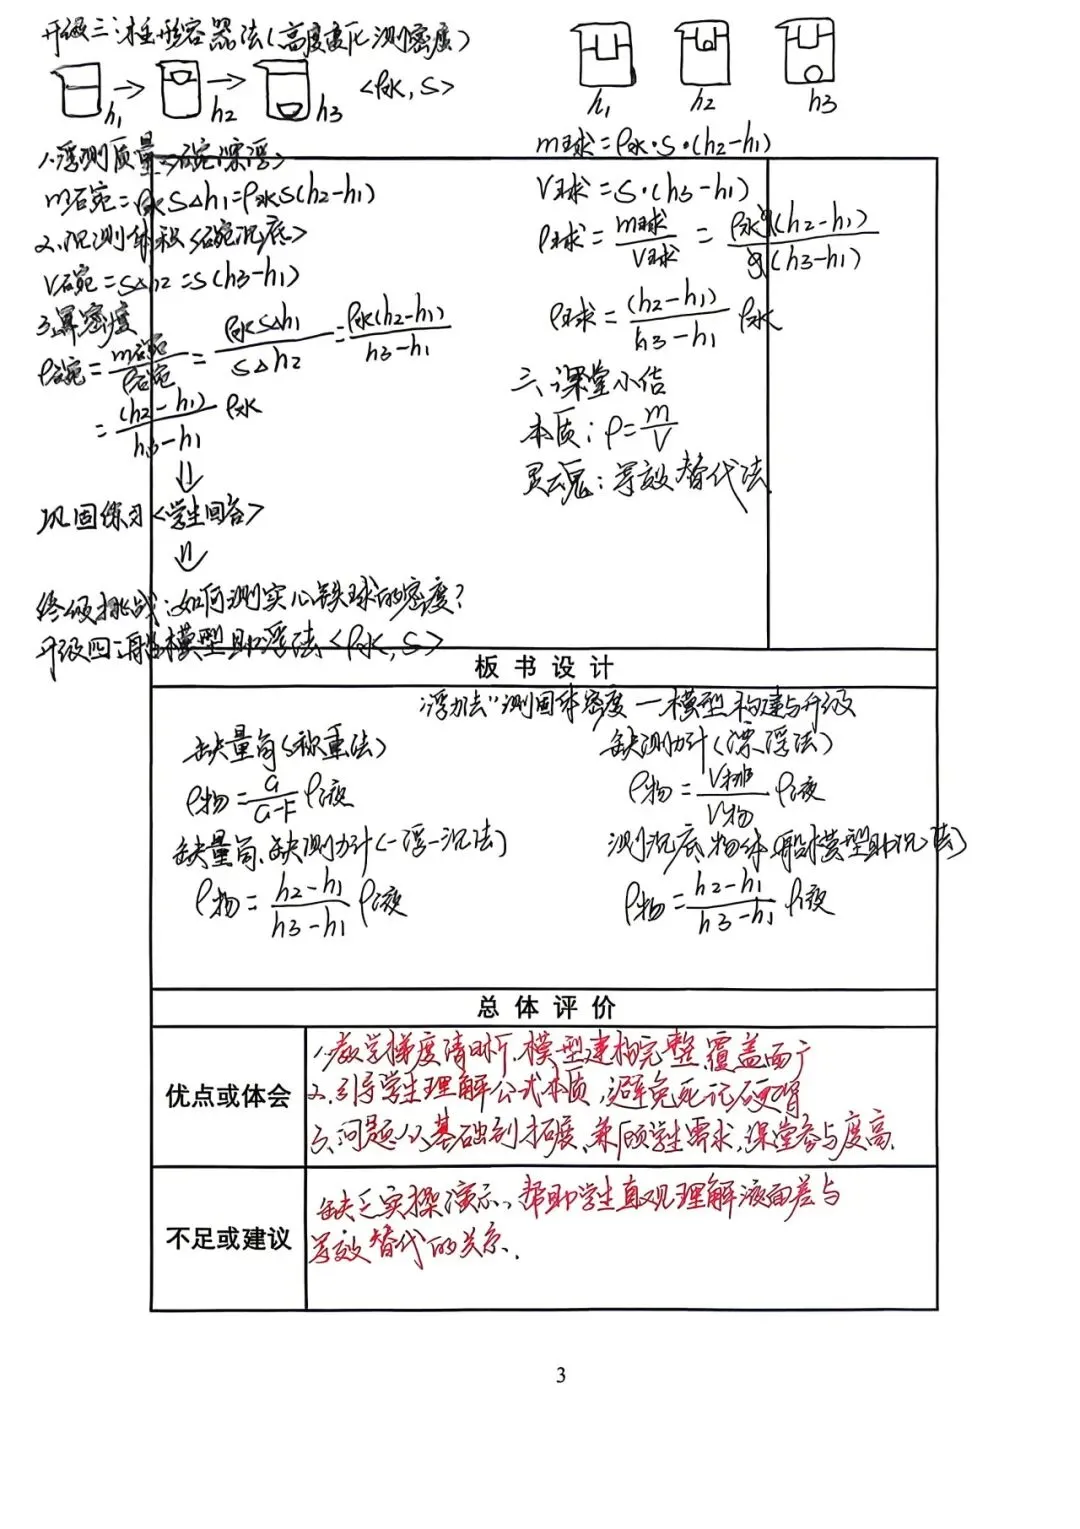 升级三:柱形容器法(高度变化测密度)
h1 h2 h3 <ρ水,S>
1.浮测质量<碗漂浮>
m碗=ρ水SΔh1=ρ水S(h2-h1)
2.沉测体积<碗沉底>
V碗=SΔh2=S(h3-h1)
3.算密度
ρ碗=m碗/ρ碗=ρ水SΔh1/SΔh2=ρ水(h2-h1)/h3-h1
=(h2-h1)/h3-h1 ρ水
⇓
巩固练习<学生回答>
⇓
终级挑战:如何测实心铁球的密度?
升级四:船模型助浮法<ρ水,S>
h1 h2 h3
m球=ρ水·S·(h2-h1)
V球=S·(h3-h1)
ρ球=m球/V球=ρ水S(h2-h1)/S(h3-h1)
ρ球=(h2-h1)/h3-h1 ρ水
三、课堂小结
本质:ρ=m/V
灵魂:等效替代法
板书设计
"浮力法"测固体密度—模型构建与升级
缺量筒(称重法)
ρ物=G/G-F ρ液
缺测力计(漂浮法)
ρ物=V排/V物 ρ液
缺量筒、缺测力计(一浮一沉法)
ρ物=h2-h1/h3-h1 ρ液
测沉底物体(船模型助沉法)
ρ物=h2-h1/h3-h1 ρ液
总体评价
优点或体会
1.教学梯度清晰,模型建构完整,覆盖面广
2.引导学生理解公式本质,避免死记硬背
3.问题从基础到拓展,兼顾学生需求,课堂参与度高.
不足或建议
缺乏实操演示,帮助学生直观理解液面差与
等效替代的关系.
3